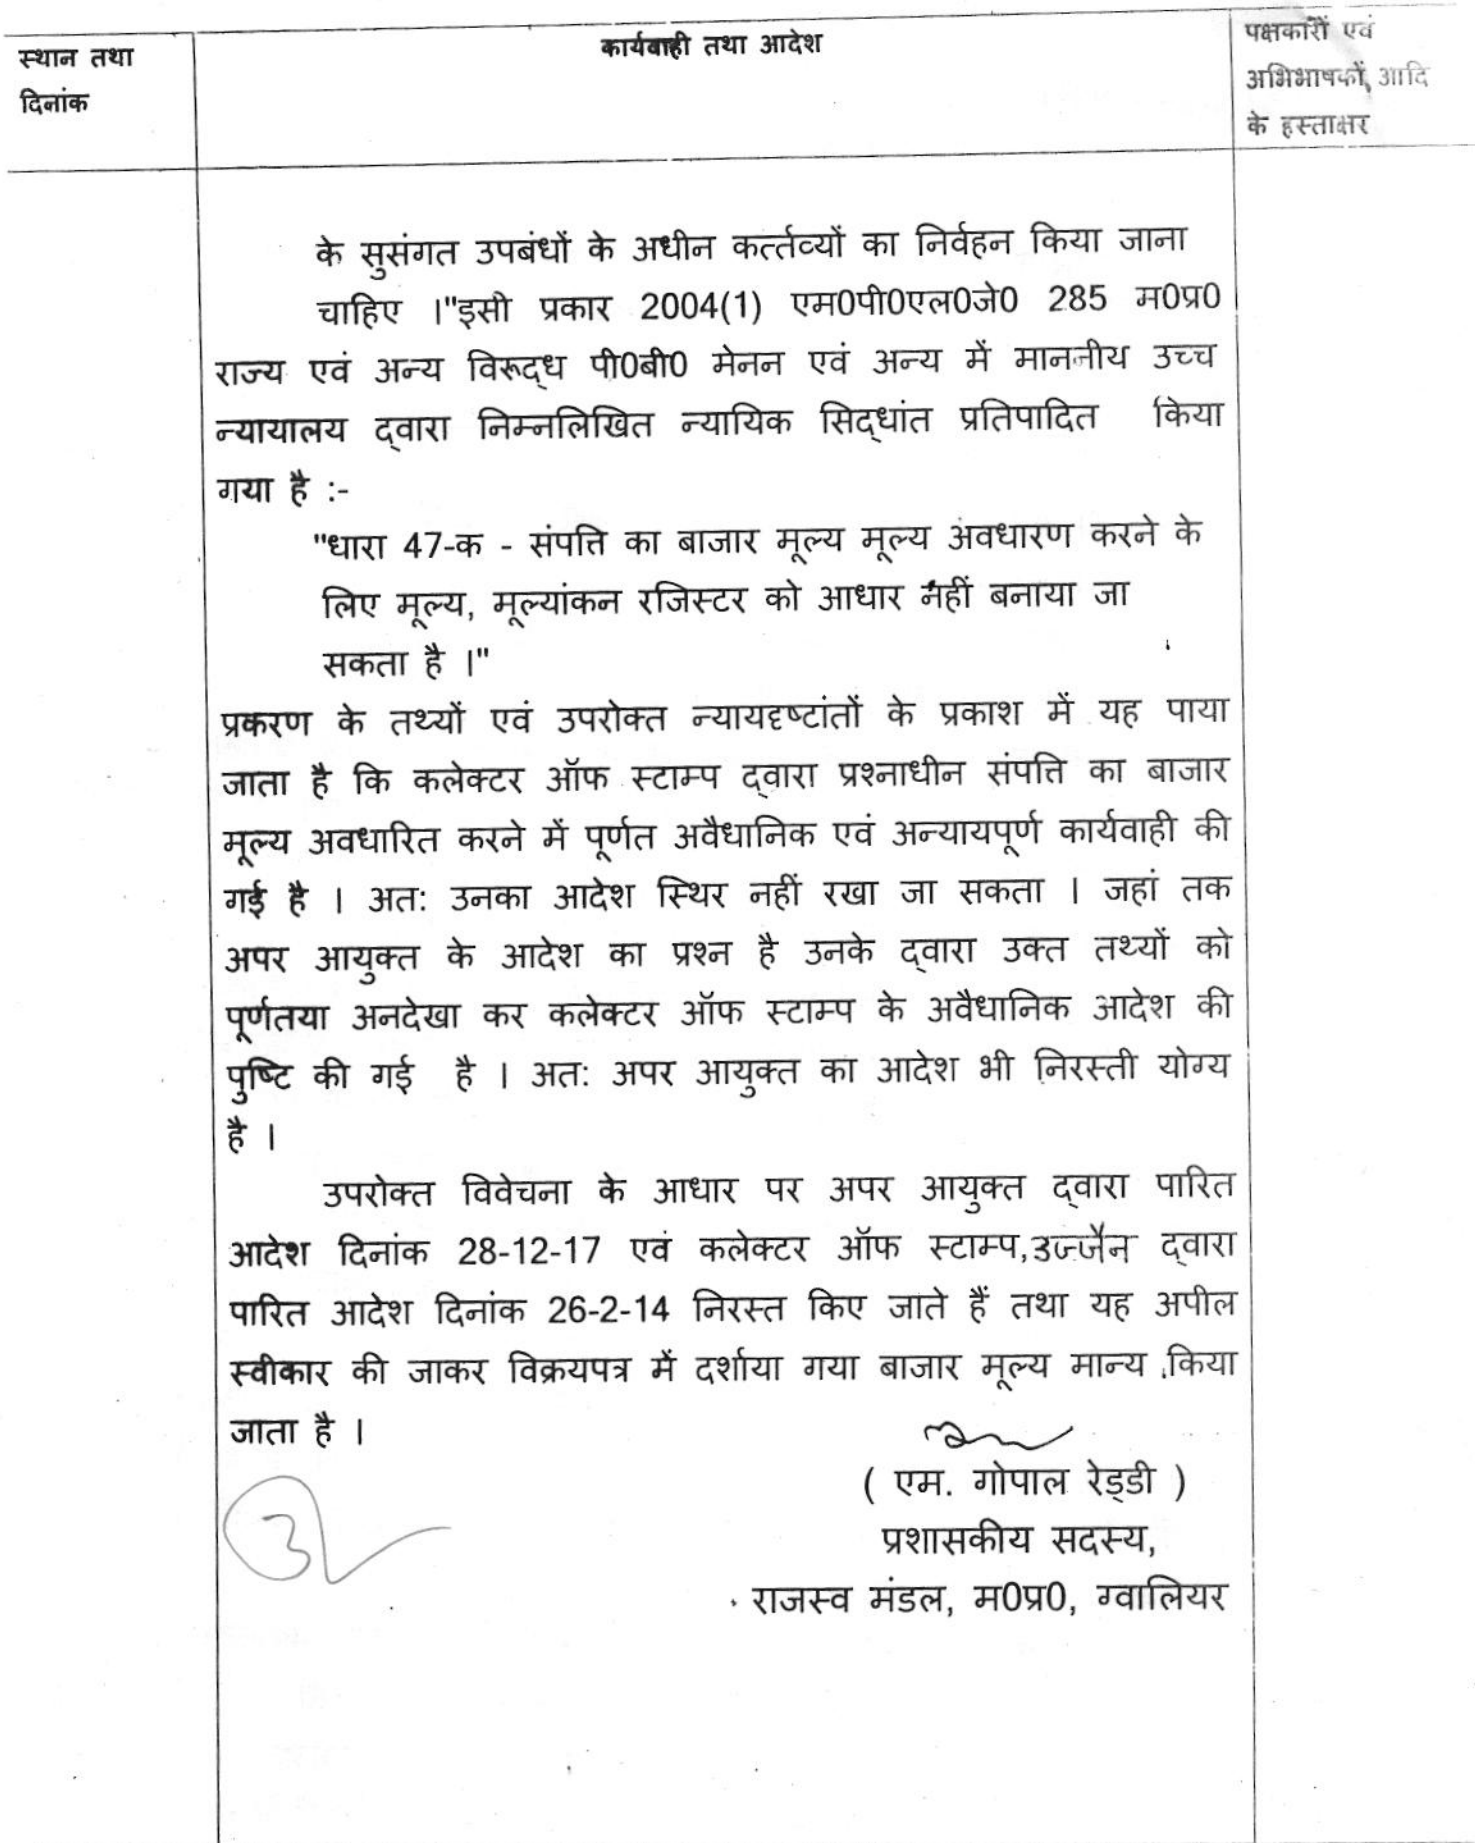 स्थान तथा
दिनांक
कार्यवाही तथा आदेश
पक्षकारों एवं
अभिभाषकों आदि
के हस्ताक्षर
के सुसंगत उपबंधों के अधीन कर्त्तव्यों का निर्वहन किया जाना
चाहिए ।"इसी प्रकार 2004(1) एम0पी0एल0जे0 285 म0प्र0
राज्य एवं अन्य विरूद्ध पी0बी0 मेनन एवं अन्य में माननीय उच्च
न्यायालय द्वारा निम्नलिखित न्यायिक सिद्धांत प्रतिपादित किया
गया है :-
"धारा 47-क - संपत्ति का बाजार मूल्य मूल्य अवधारण करने के
लिए मूल्य, मूल्यांकन रजिस्टर को आधार नहीं बनाया जा
सकता है ।"
प्रकरण के तथ्यों एवं उपरोक्त न्यायदृष्टांतों के प्रकाश में यह पाया
जाता है कि कलेक्टर ऑफ स्टाम्प द्वारा प्रश्नाधीन संपत्ति का बाजार
मूल्य अवधारित करने में पूर्णत अवैधानिक एवं अन्यायपूर्ण कार्यवाही की
गई है । अतः उनका आदेश स्थिर नहीं रखा जा सकता । जहां तक
अपर आयुक्त के आदेश का प्रश्न है उनके द्वारा उक्त तथ्यों को
पूर्णतया अनदेखा कर कलेक्टर ऑफ स्टाम्प के अवैधानिक आदेश की
पुष्टि की गई है । अतः अपर आयुक्त का आदेश भी निरस्ती योग्य
है ।
उपरोक्त विवेचना के आधार पर अपर आयुक्त द्वारा पारित
आदेश दिनांक 28-12-17 एवं कलेक्टर ऑफ स्टाम्प,उज्जैन द्वारा
पारित आदेश दिनांक 26-2-14 निरस्त किए जाते हैं तथा यह अपील
स्वीकार की जाकर विक्रयपत्र में दर्शाया गया बाजार मूल्य मान्य किया
जाता है ।
( एम. गोपाल रेड्डी )
प्रशासकीय सदस्य,
राजस्व मंडल, म0प्र0, ग्वालियर